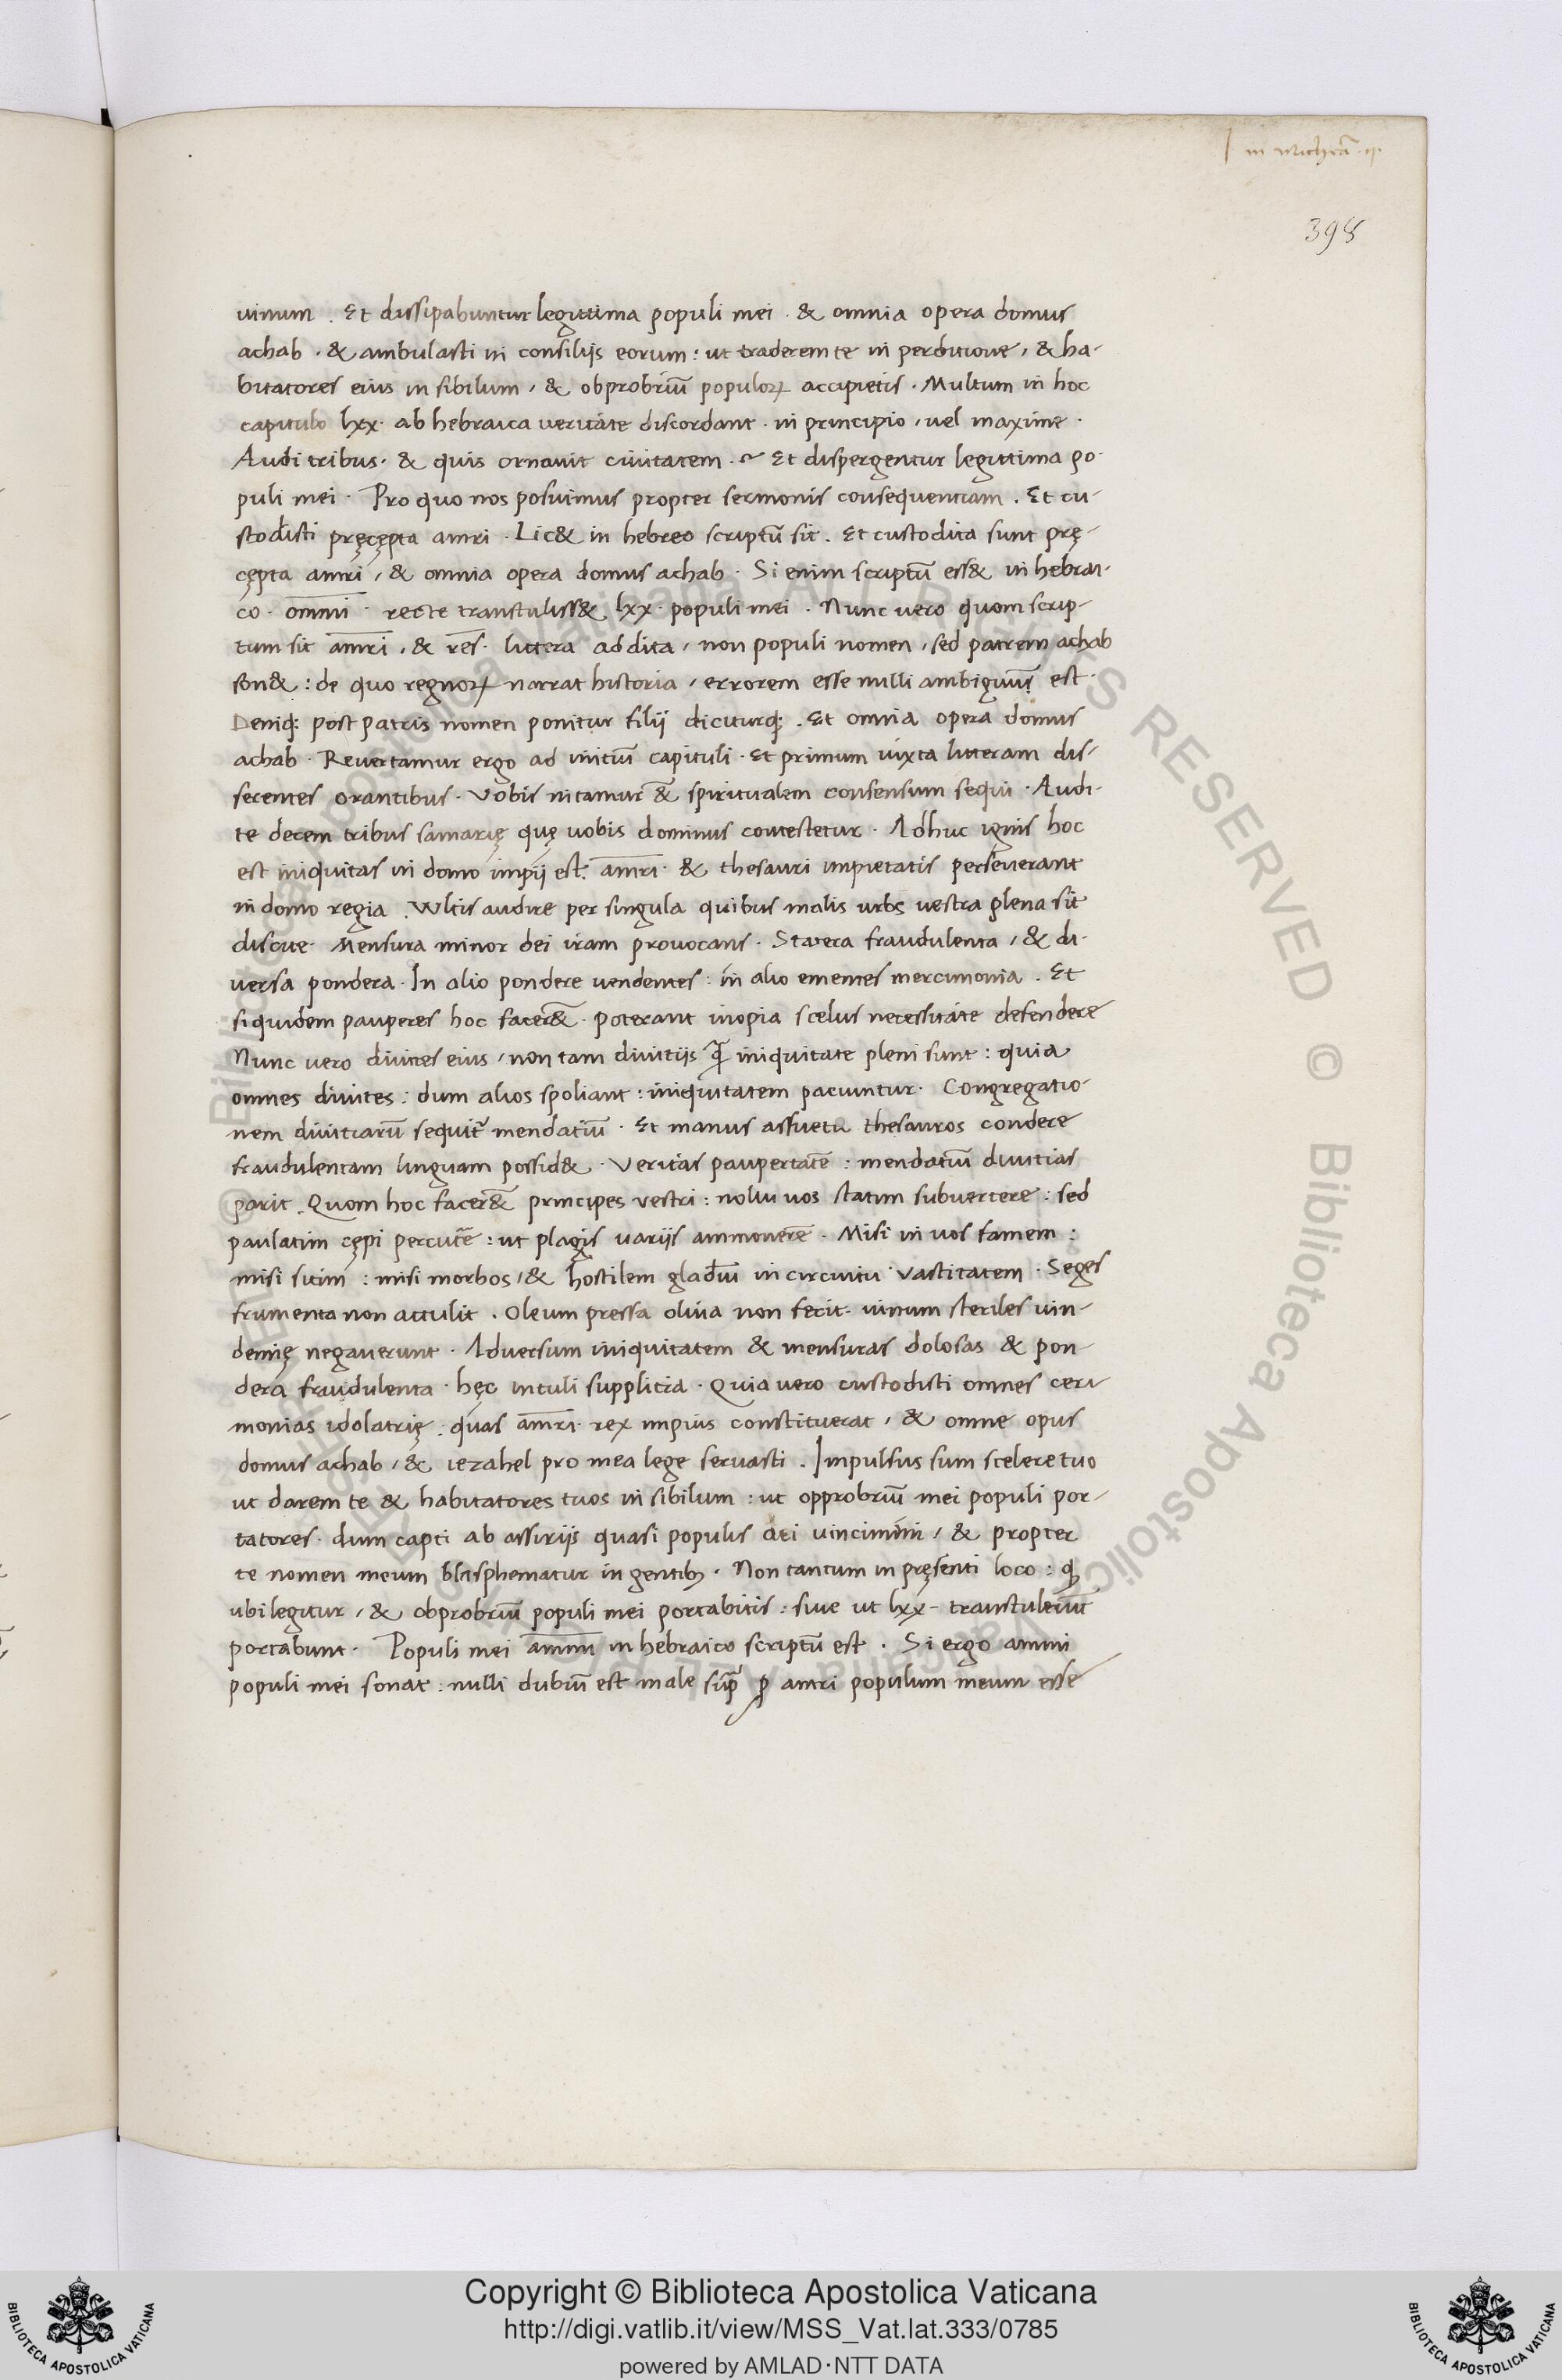 In Michea .ii.
398
uinum . Et dissipabuntur legittima populi mei . & omnia opera domus
achab . & ambulasti in consilijs eorum : ut traderem te in perditione , & ha-
bitatores eius in sibilum , & obprobriū populoꝝ accipietis . Multum in hoc
capitulo lxx . ab hebraica ueritate discordant . in principio , uel maxime .
Audi tribus . & quis ornauit ciuitatem . ~ Et dispergentur legittima po-
puli mei . Pro quo nos posuimus propter sermonis consequentiam . Et cu-
stodisti pręcępta amri . Lic& in hebreo scriptū sit . Et custodita sunt prę-
cępta amri , & omnia opera domus achab . Si enim scriptū ess& in hebrai-
co . om̄mi . recte transtuliss& lxx . populi mei . Nunc vero quom scrip-
tum sit am̄ri , & rēs . littera addita , non populi nomen , sed patrem achab
son& : de quo regnoꝝ narrat historia , errorem esse nulli ambiguūs est .
Deniq; post patris nomen ponitur filij diciturq; . Et omnia opera domus
achab . Revertamur ergo ad initiū capituli . Et primum iuxta litteram dis-
serentes orantibus . Vobis nitamur & spiritualem consensum sequi . Audi-
te decem tribus samarię quę uobis dominus contestetur . Adhuc ignis hoc
est iniquitas in domo impij est . am̄ri . & thesauri impietatis perseuerant
in domo regia . Vultis audire per singula quibus malis urbs uestra plena sit
discite . Mensura minor dei iram prouocans . Statera fraudulenta , & di-
uersa pondera . In alio pondere uendentes : in alio ementes mercimonia . Et
siquidem pauperes hoc facer& . poterant inopia scelus necessitate defendere
Nunc vero diuites eius , non tam diuitijs ꝙ̄ iniquitate pleni sunt : quia
omnes diuites : dum alios spoliant : iniquitatem paciuntur . Congregatio-
nem diuitiarū sequit᷑ mendatiū . Et manus assueta thesauros condere
fraudulentam linguam possid& . Veritas paupertatē : mendatiū diuitias
parit . Quom hoc facer& principes vestri : nolui uos statim subuertere : sed
paulatim cępi percutē : ut plagis uariis ammonerē . Misi in uos famem :
misi sitim : misi morbos , & hostilem gladiū in circuitu vastitatem . Seges
frumenta non attulit . Oleum pressa oliua non fecit . uinum steriles uin-
demię negauerunt . Aduersum iniquitatem & mensuras dolosas & pon-
dera fraudulenta . hęc intuli supplicia . Quia uero custodisti omnes ceri
monias idolatrię : quas am̄ri . rex impius constituerat , & omne opus
domus achab , & iezahel pro mea lege seruasti . Impulsus sum scelere tuo
ut darem te & habitatores tuos in sibilum : ut opprobriū mei populi por-
tatores . dum capti ab assirijs quasi populis dei uincimini , & propter
te nomen meum blasphematur in gentibꝫ . Non tantum in pręsenti loco : ꝙ
ubi legitur , & obprobriū populi mei portabitis : siue ut lxx - transtulerūt
portabunt . Populi mei am̄mi in hebraico scriptū est . Si ergo ammi
populi mei sonat : nulli dubiū est male sup̄ ꝓ amri populum meum esse
Copyright © Biblioteca Apostolica Vaticana
http://digi.vatlib.it/view/MSS_Vat.lat.333/0785
powered by AMLAD·NTT DATA